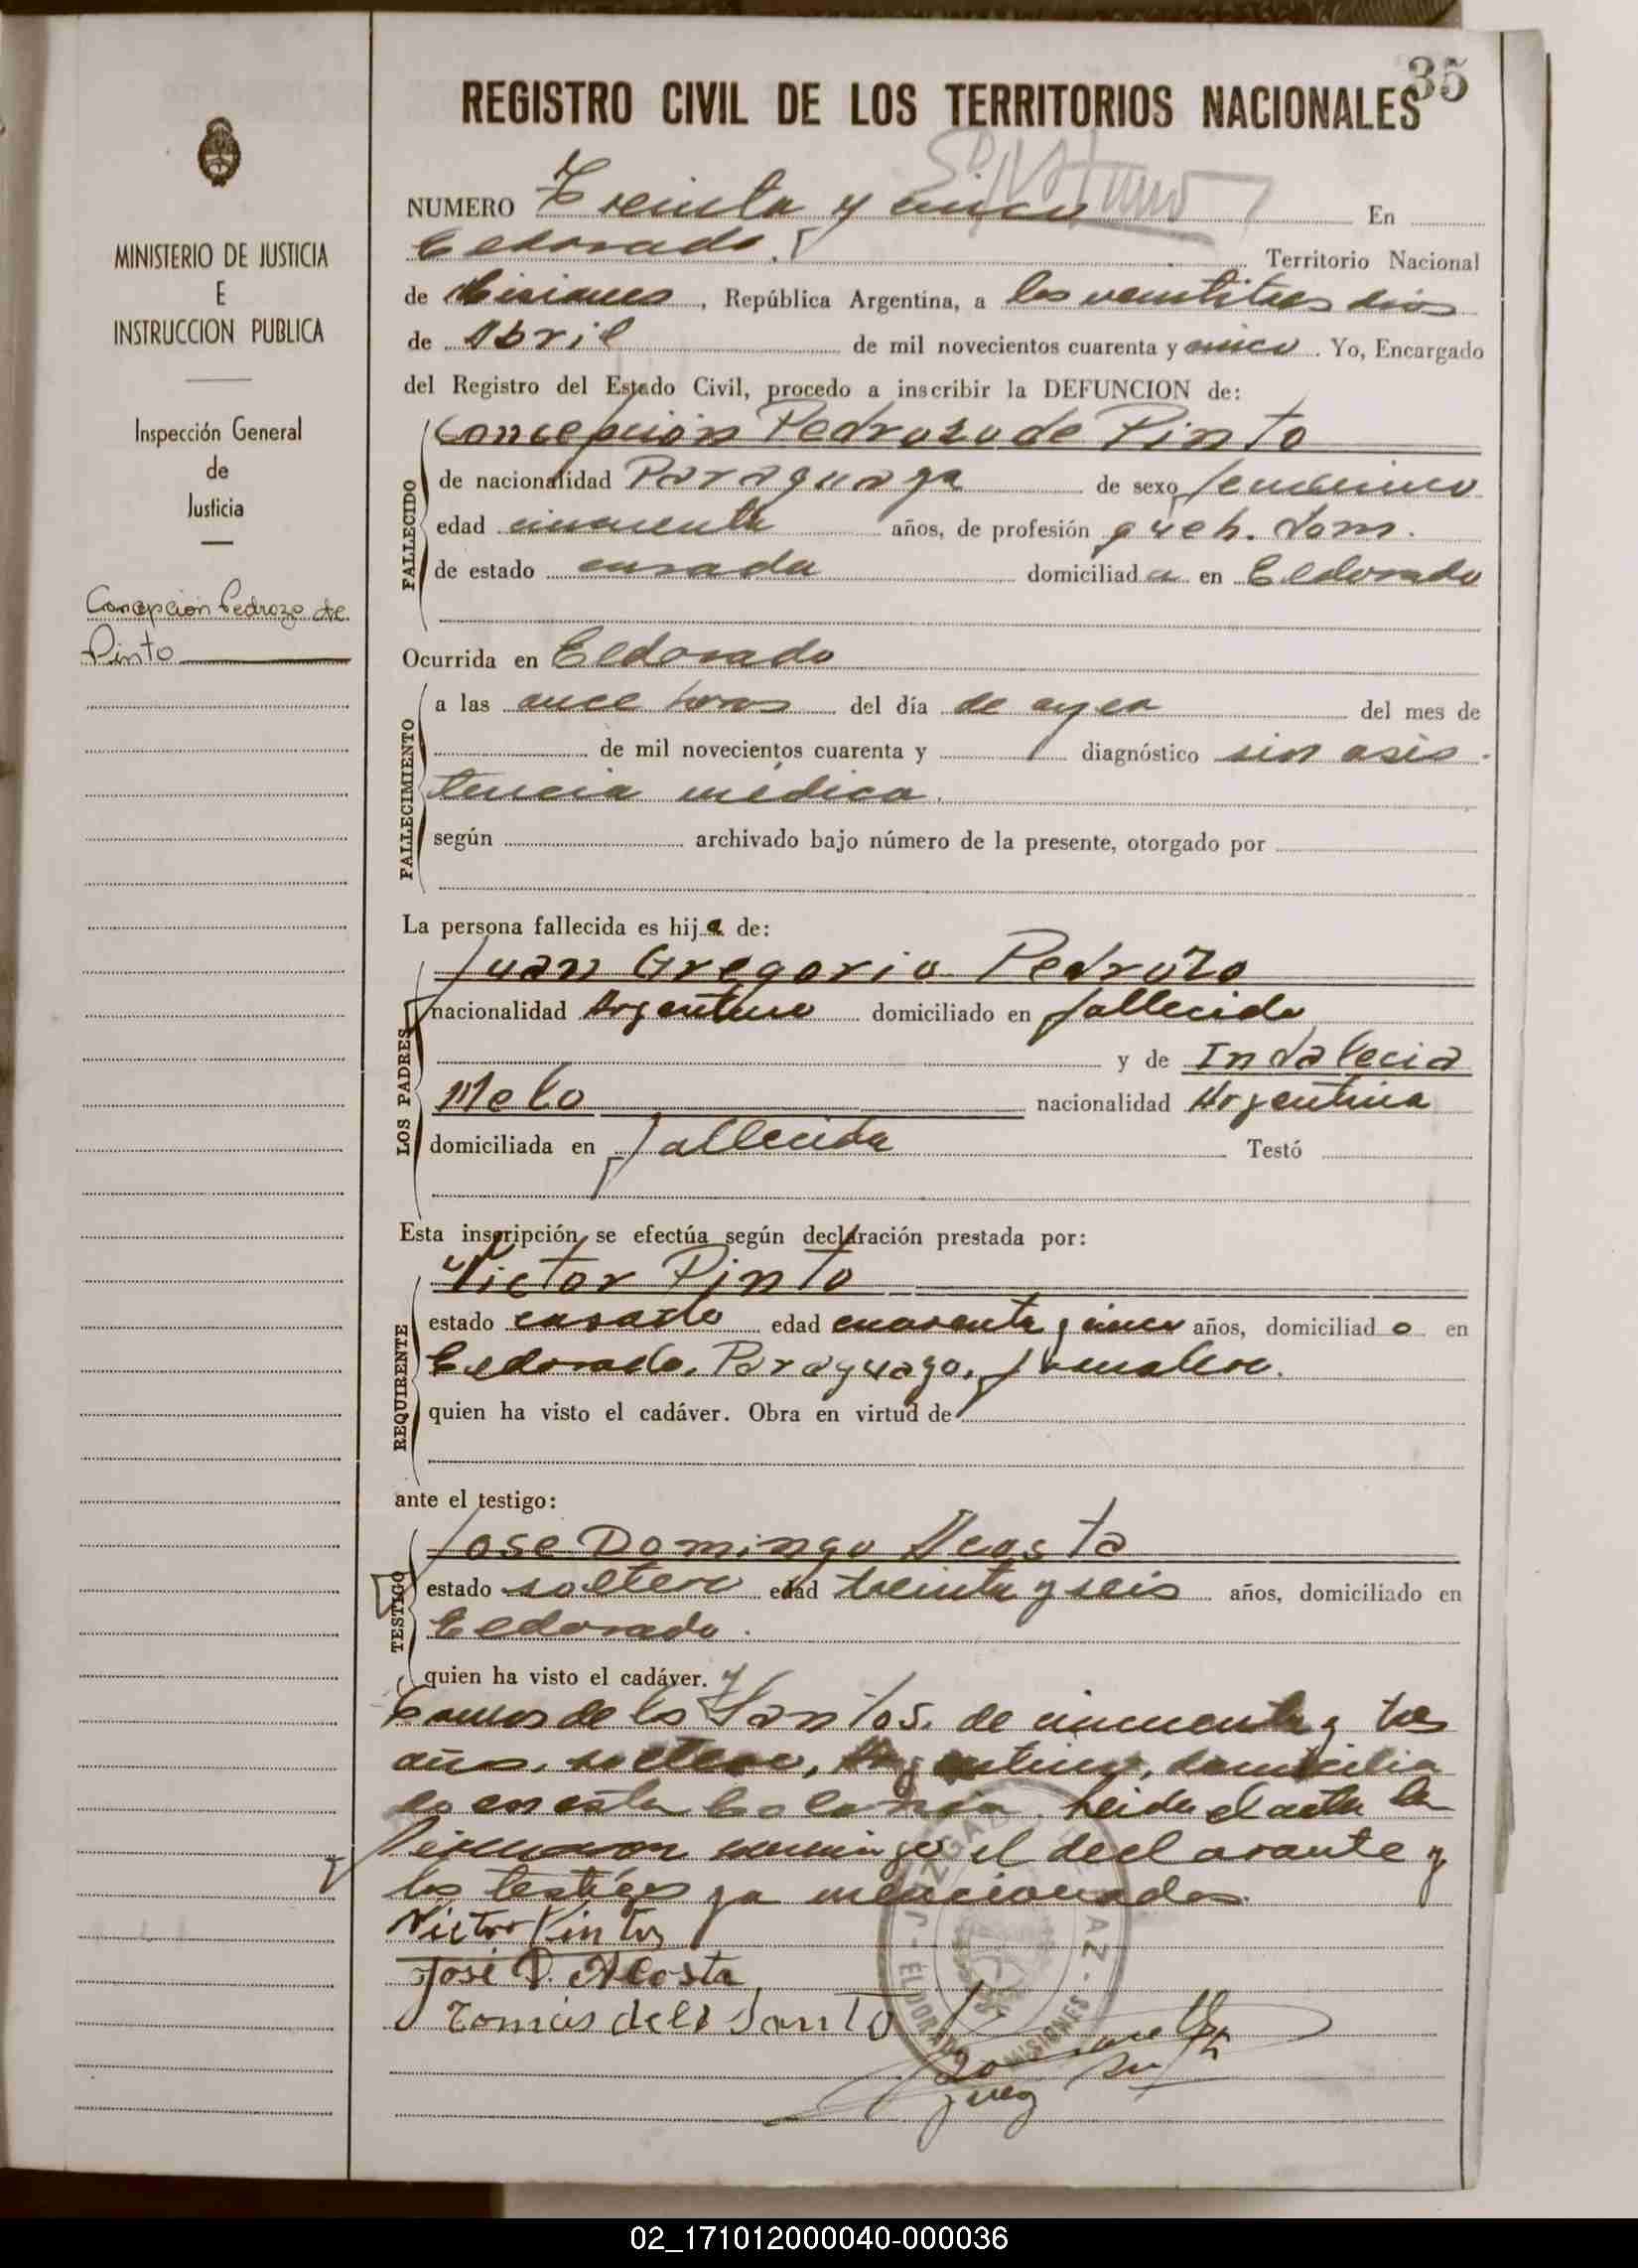 35
REGISTRO CIVIL DE LOS TERRITORIOS NACIONALES
MINISTERIO DE JUSTICIA
E
INSTRUCCION PUBLICA
Inspección General
de
Justicia
Concepción Pedrozo de
Pinto
NUMERO Treinta y cinco En
Eldorado. Territorio Nacional
de Misiones, República Argentina, a los veintitres dias
de Abril de mil novecientos cuarenta y cinco. Yo, Encargado
del Registro del Estado Civil, procedo a inscribir la DEFUNCION de:
Concepcion Pedrozo de Pinto
FALLECIDO
de nacionalidad Paraguaya de sexo femenino
edad cincuenta años, de profesión queh. dom.
de estado casada domiciliada en Eldorado
Ocurrida en Eldorado
FALLECIMIENTO
a las once horas del día de ayer del mes de
de mil novecientos cuarenta y diagnóstico sin asis-
tencia médica.
según archivado bajo número de la presente, otorgado por
La persona fallecida es hija de:
LOS PADRES
Juan Gregorio Pedrozo
nacionalidad Argentino domiciliado en fallecido
y de Indalecia
Melo nacionalidad Argentina
domiciliada en fallecida Testó
Esta inscripción se efectúa según declaración prestada por:
REQUIRENTE
Victor Pinto
estado casado edad cuarenta y cinco años, domiciliado en
Eldorado, Paraguayo, jornalero.
quien ha visto el cadáver. Obra en virtud de
ante el testigo:
TESTIGO
Jose Domingo Acosta
estado soltero edad treinta y seis años, domiciliado en
Eldorado.
quien ha visto el cadáver. y
de los Santos. de cincuenta y tres
años, soltero, Argentino, domicilia
do en esta Colonia. Leida el acta la
conmigo el declarante y
los testigos ya mencionados.
Victor Pinto
José D. Acosta
Tomás dels Santo
JUZGADO DE PAZ - ELDORADO MISIONES
Juez
02_171012000040-000036